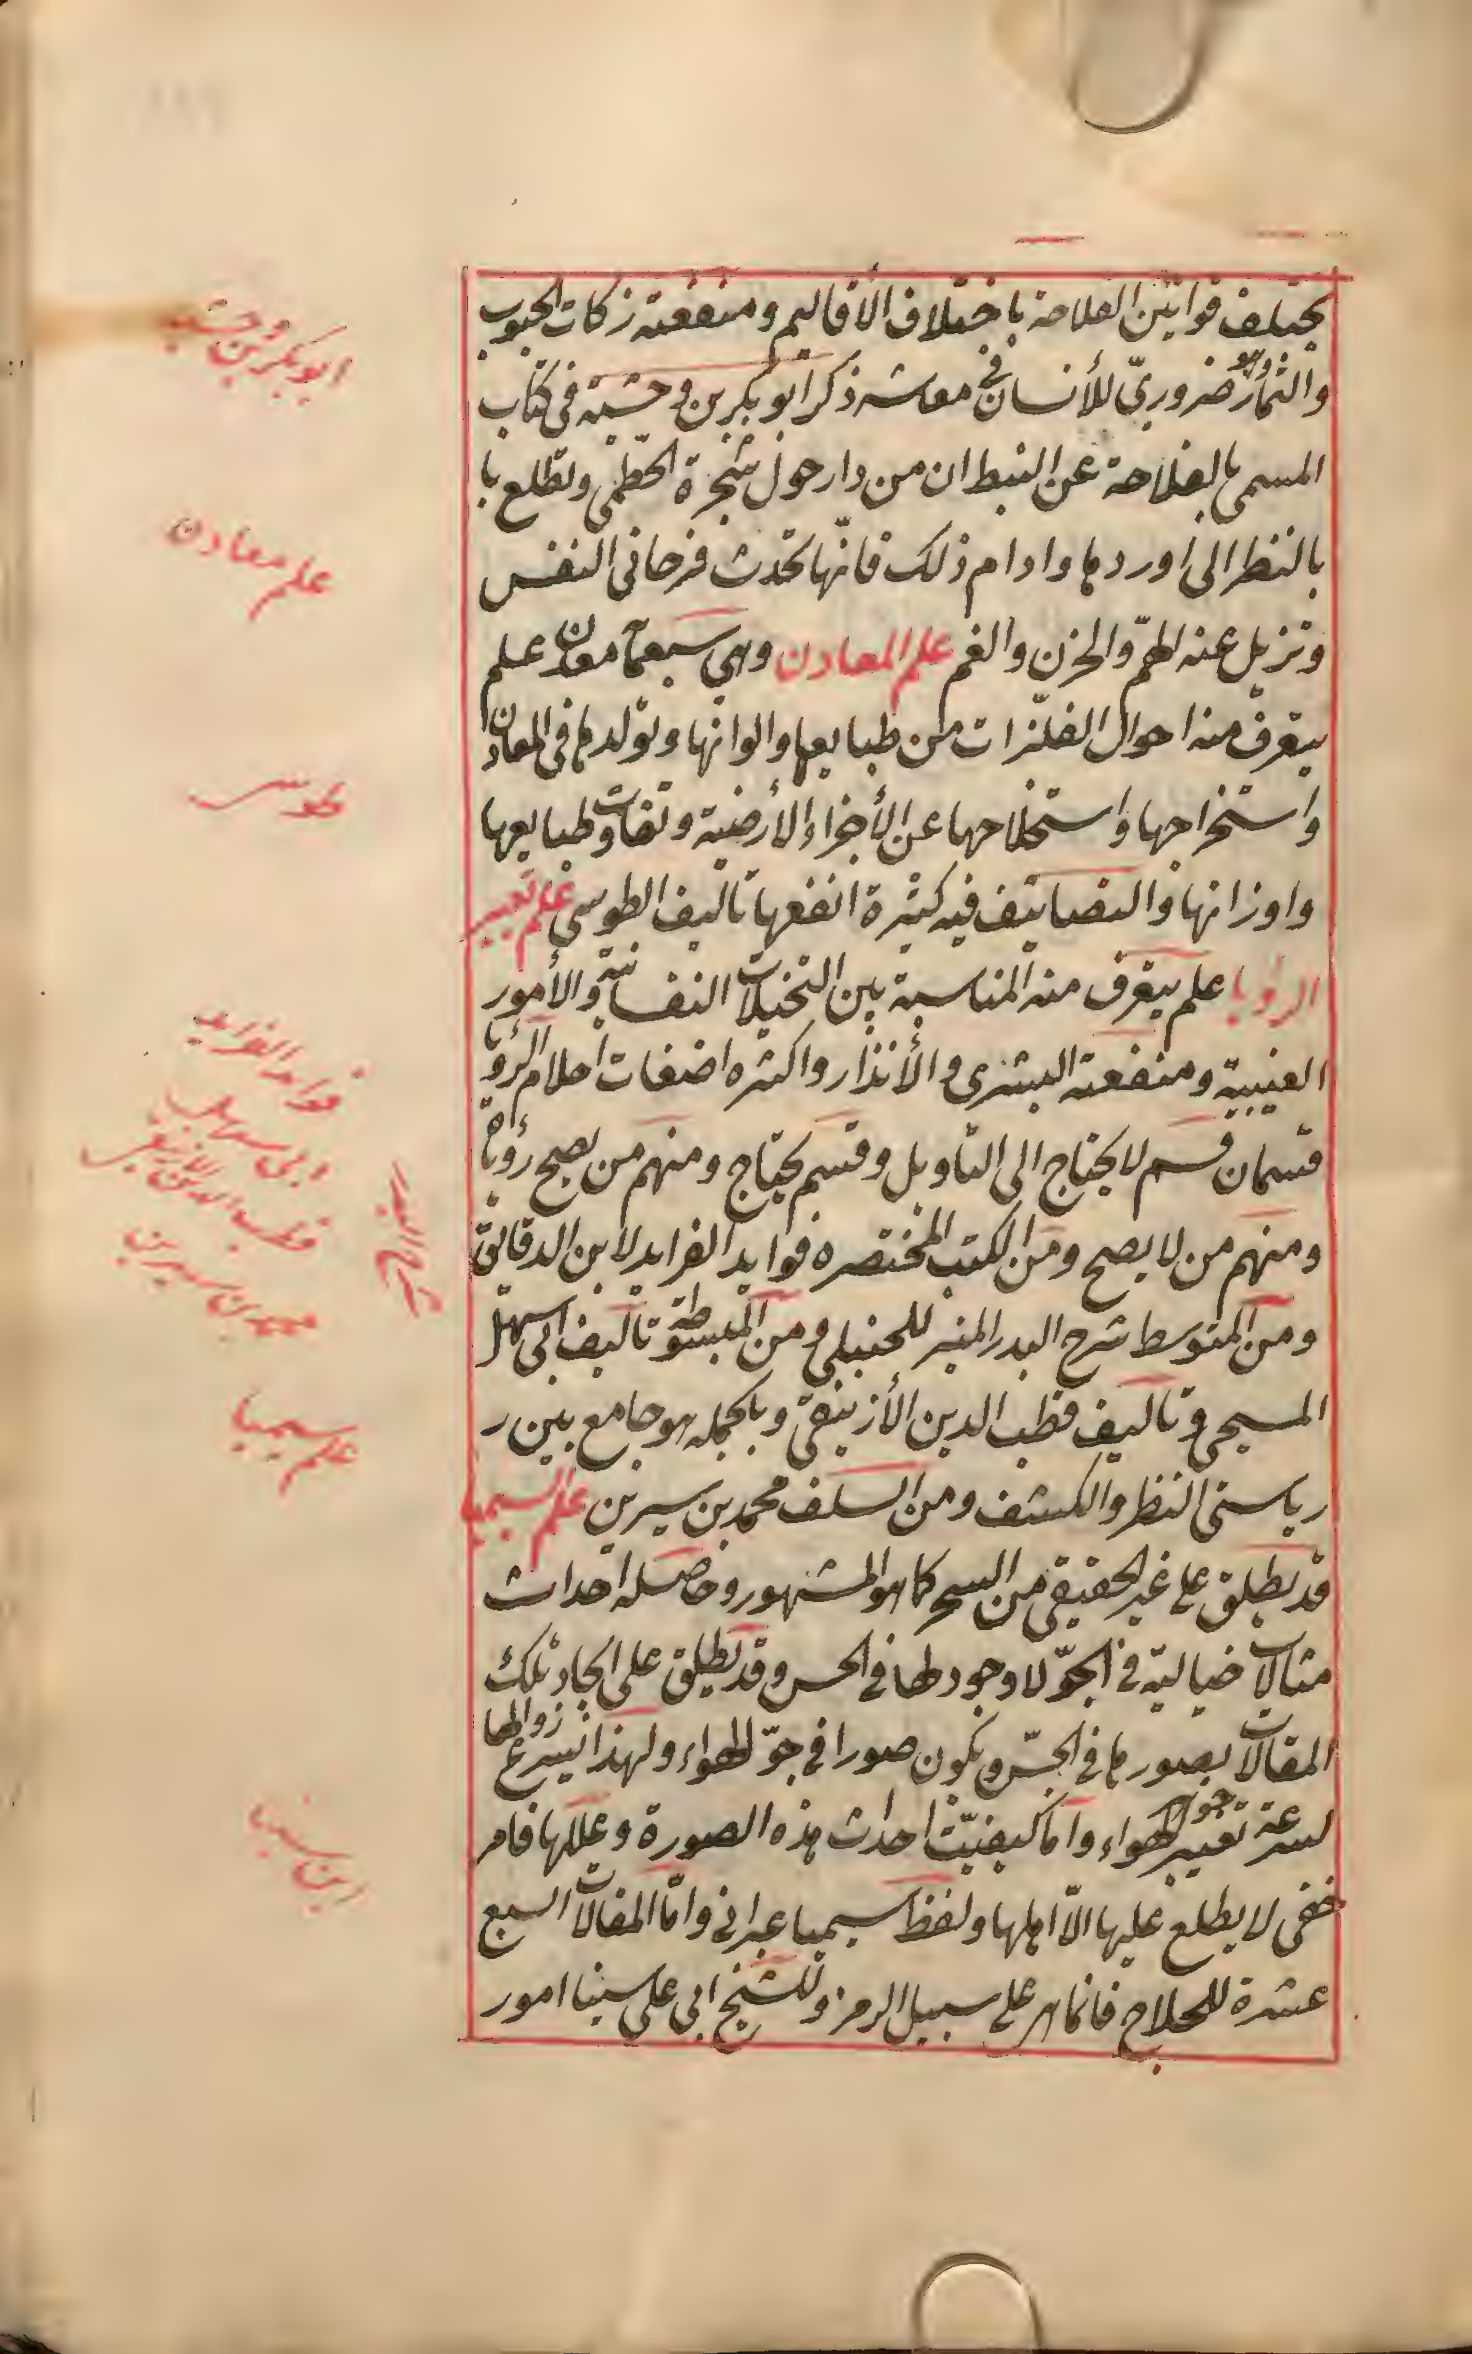 يختلف قوانين الفلاحة باختلاف الأقاليم ومنفعته زكات الحبوب
والثمار وهو ضروريّ للأنسان في معاشه ذكر ابو بكر بن وحشيه في كتاب
المسمى بالفلاحة عن النبط ان من دار حول شجرة الخطمى وتطلع با
بالنظر الى اوردها وادام ذلك فانّها تحدث فرحا فى النفس
وتزيل عنه الهمّ والحزن والغم علم المعادن وهي سبعمآ معدن علم
يتعرف منه احوال الفلزّات من طبايعها والوانها وتولدها فى المعادن
واستخراجها واستخلاصها عن الأجزاء الأرضية وتفاوت طبايعها
واوزانها والتصانيف فيه كثيرة انفعها تأليف الطوسي علم تعبير
الرؤيا علم يتعرف منه المناسبة بين التخيلات النفسانية والأمور
الغيبية ومنفعته البشرى والأنذار واكثره اضغات احلام الرؤيا
قسمان قسم لا يحتاج الى التأويل وقسم يحتاج ومنهم من يصح رؤياه
ومنهم من لا يصح ومن الكتب المختصره فوايد الفرايد لابن الدقايق
ومن المتوسط شرح البدر المنير للحنبلي ومن المبسوطة تأليف ابى سهل
المسيحى وتأليف قطب الدين الأزنيقي وبالجمله هو جامع بين ر
رياستى النظر والكشف ومن السلف محمد بن سيرين علم السيميا
قد يطلق على غير الحقيقي من السحر كما هو المشهور وحاصله احداث
مثالات خيالية في الجوّ لا وجود لها في الحس وقد يطلق على ايجاد تلك
المقالات بصورها في الحسّ وتكون صورا في جوّ الهواء ولهذا يسرع زوالها
لسرعة تغيير جوهر الهواء واما كيفيّت احداث هذه الصورة وعللها فامر
خفى لا يطلع عليها الّا اهلها ولفظ سيميا عبرانى وامّا المقالات السبع
عشرة للحلاج فانما هر على سبيل الرمز وللشيخ ابى على سينا امور
ابو بكر بن وحشيه
علم معادن
طوسى
فوايد الفرايد
ابى سهل
قطب الدين الازنيقى
محمد بن سيرين
علم سيميا
ابن سينا